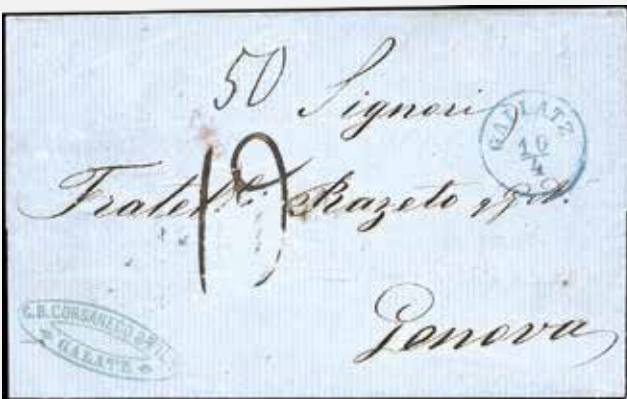 50 Signori
GALATZ
10
4
Fratelli Razeto
19
Genova
G. B. CORSANEGO
GALATZ